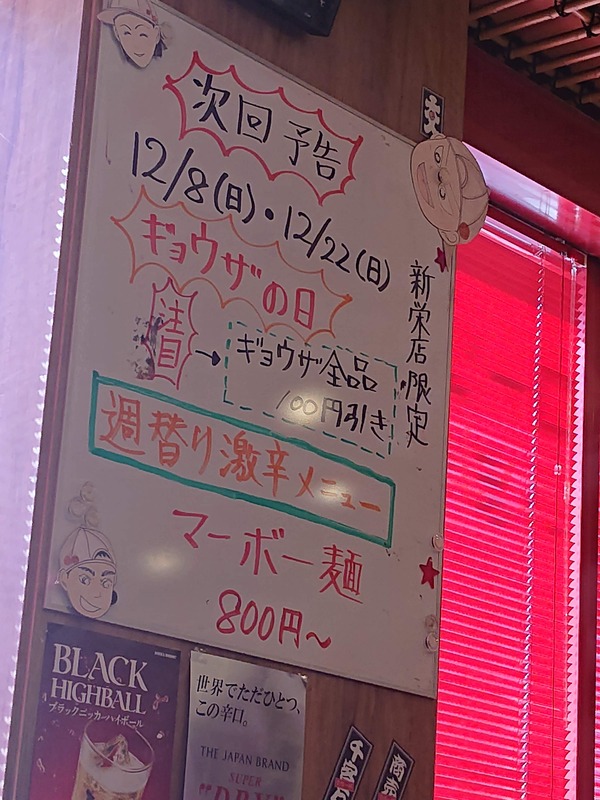 次回予告
12/8(日)・12/22(日)
ギョウザの日
注目
→ギョウザ全品
100円引き
新栄店限定
週替り激辛メニュー
マーボー麺
800円～
BLACK
HIGHBALL
ブラックニッカハイボール
世界でただひとつ、
この辛口。
THE JAPAN BRAND
SUPER
"DRY"